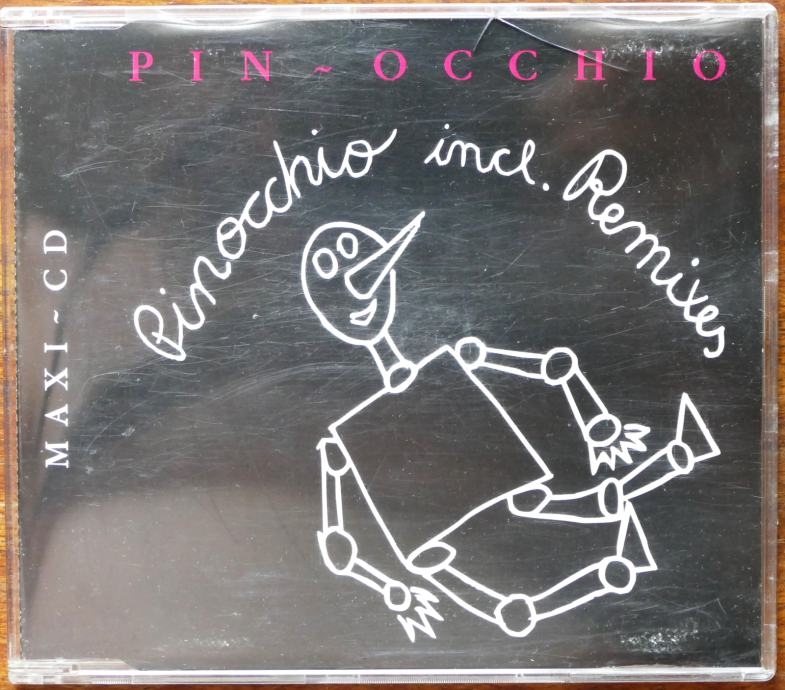 PIN~OCCHIO
Pinocchio incl. Remixes
MAXI~CD